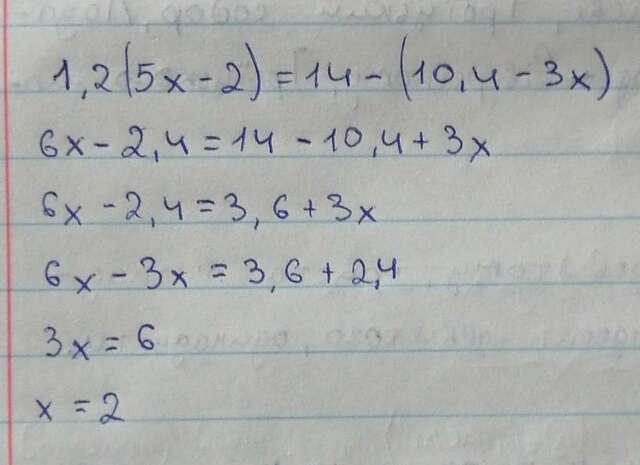 1,2(5x-2)=14-(10,4-3x)
6x-2,4=14-10,4+3x
6x-2,4=3,6+3x
6x-3x=3,6+2,4
3x=6
x=2